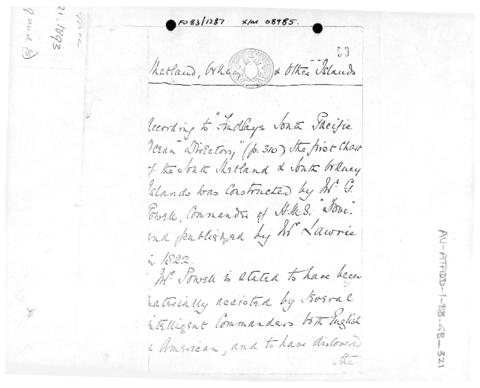 FO 83/1287 X/M 08985.
21.1893
53
Shetland, Orkney & Other Islands
According to "Findlays South Pacific
Ocean Directory" (p. 310) the first Chart
of the South Shetland & South Orkney
Islands was constructed by Mr G.
Powell, Commander of H.M.S. "Dove".
and published by Mr Lawrie
in 1822.
Mr Powell is stated to have been
materially assisted by several
intelligent Commanders both English
& American, and to have discovered
the
AU-ATADD-1-BB-GB-321